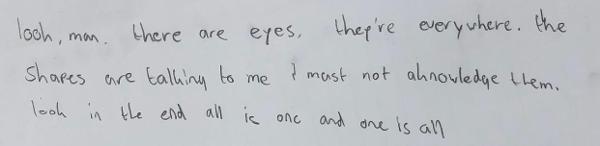 look, man. there are eyes. they're everywhere. the
shapes are talking to me I must not aknowledge them.
look in the end all is one and one is all